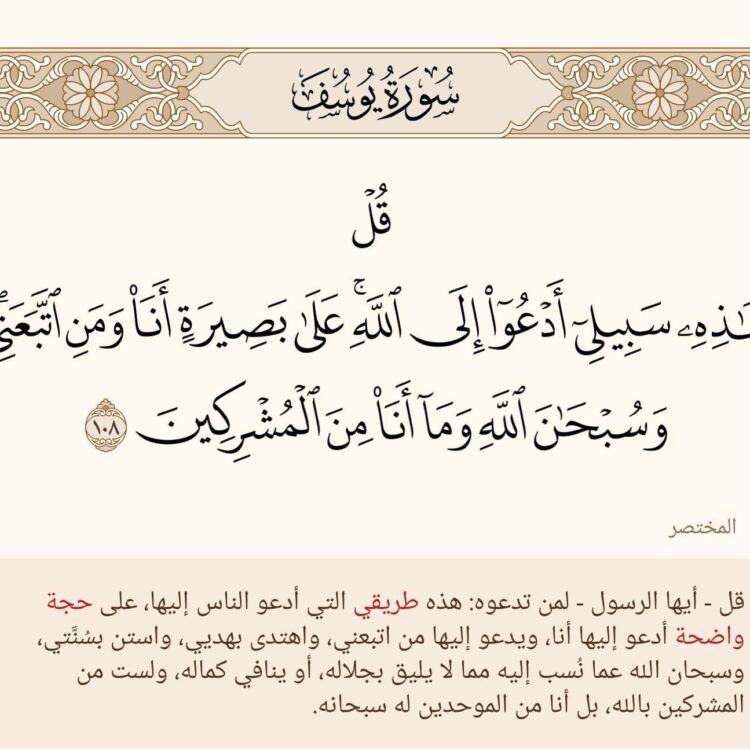 سُورَةُ يُوسُفَ
قُلۡ
ـٰذِهِۦ سَبِيلِيٓ أَدۡعُوٓاْ إِلَى ٱللَّهِۚ عَلَىٰ بَصِيرَةٍ أَنَا۠ وَمَنِ ٱتَّبَعَنِيۖ
وَسُبۡحَٰنَ ٱللَّهِ وَمَآ أَنَا۠ مِنَ ٱلۡمُشۡرِكِينَ ١٠٨
المختصر
قل - أيها الرسول - لمن تدعوه: هذه طريقي التي أدعو الناس إليها، على حجة
واضحة أدعو إليها أنا، ويدعو إليها من اتبعني، واهتدى بهديي، واستن بسُنَّتي،
وسبحان الله عما نُسب إليه مما لا يليق بجلاله، أو ينافي كماله، ولست من
المشركين بالله، بل أنا من الموحدين له سبحانه.